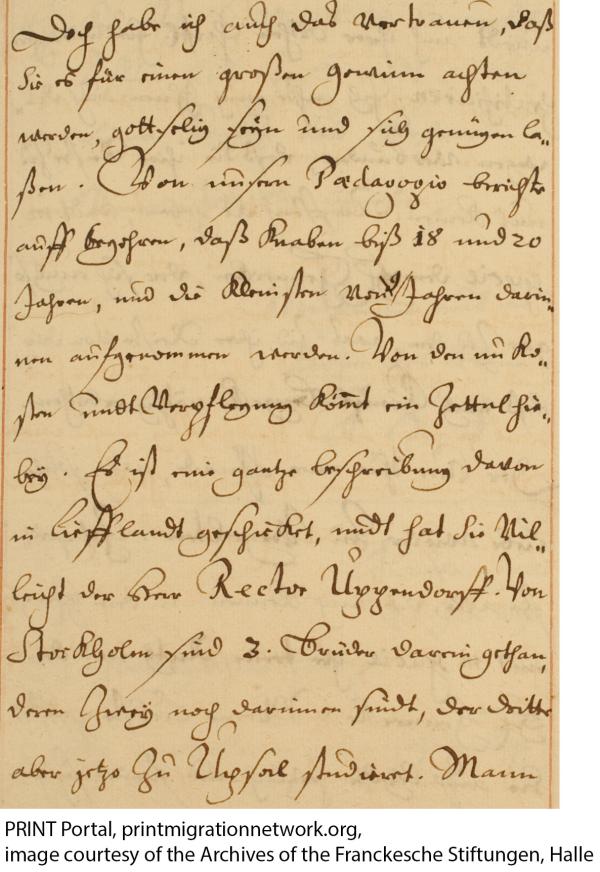 Doch habe ich auch das Vertrauen, daß
Sie es für einen großen gewinn achten
werden, gottselig seyn und sich genügen la„
ßen. Von unserm Pædagogio berichte
auff begehren, daß Knaben biß 18 und 20
Jahren, und die Kleinsten von Jahren darin„
nen aufgenommen werden. Von den unko„
sten undt Verpflegung kömt ein Zettul hie„
bey. Es ist eine gantze beschreibung davon
in Liefflandt geschicket, undt hat Sie Viel„
leicht der Herr Rector Uppendorff. Von
Stockholm sind 3. Brüder darein gethan,
deren Zwey noch darinnen sindt, der dritte
aber jetzo Zu Upsal studieret. Mann
PRINT Portal, printmigrationnetwork.org,
image courtesy of the Archives of the Franckesche Stiftungen, Halle